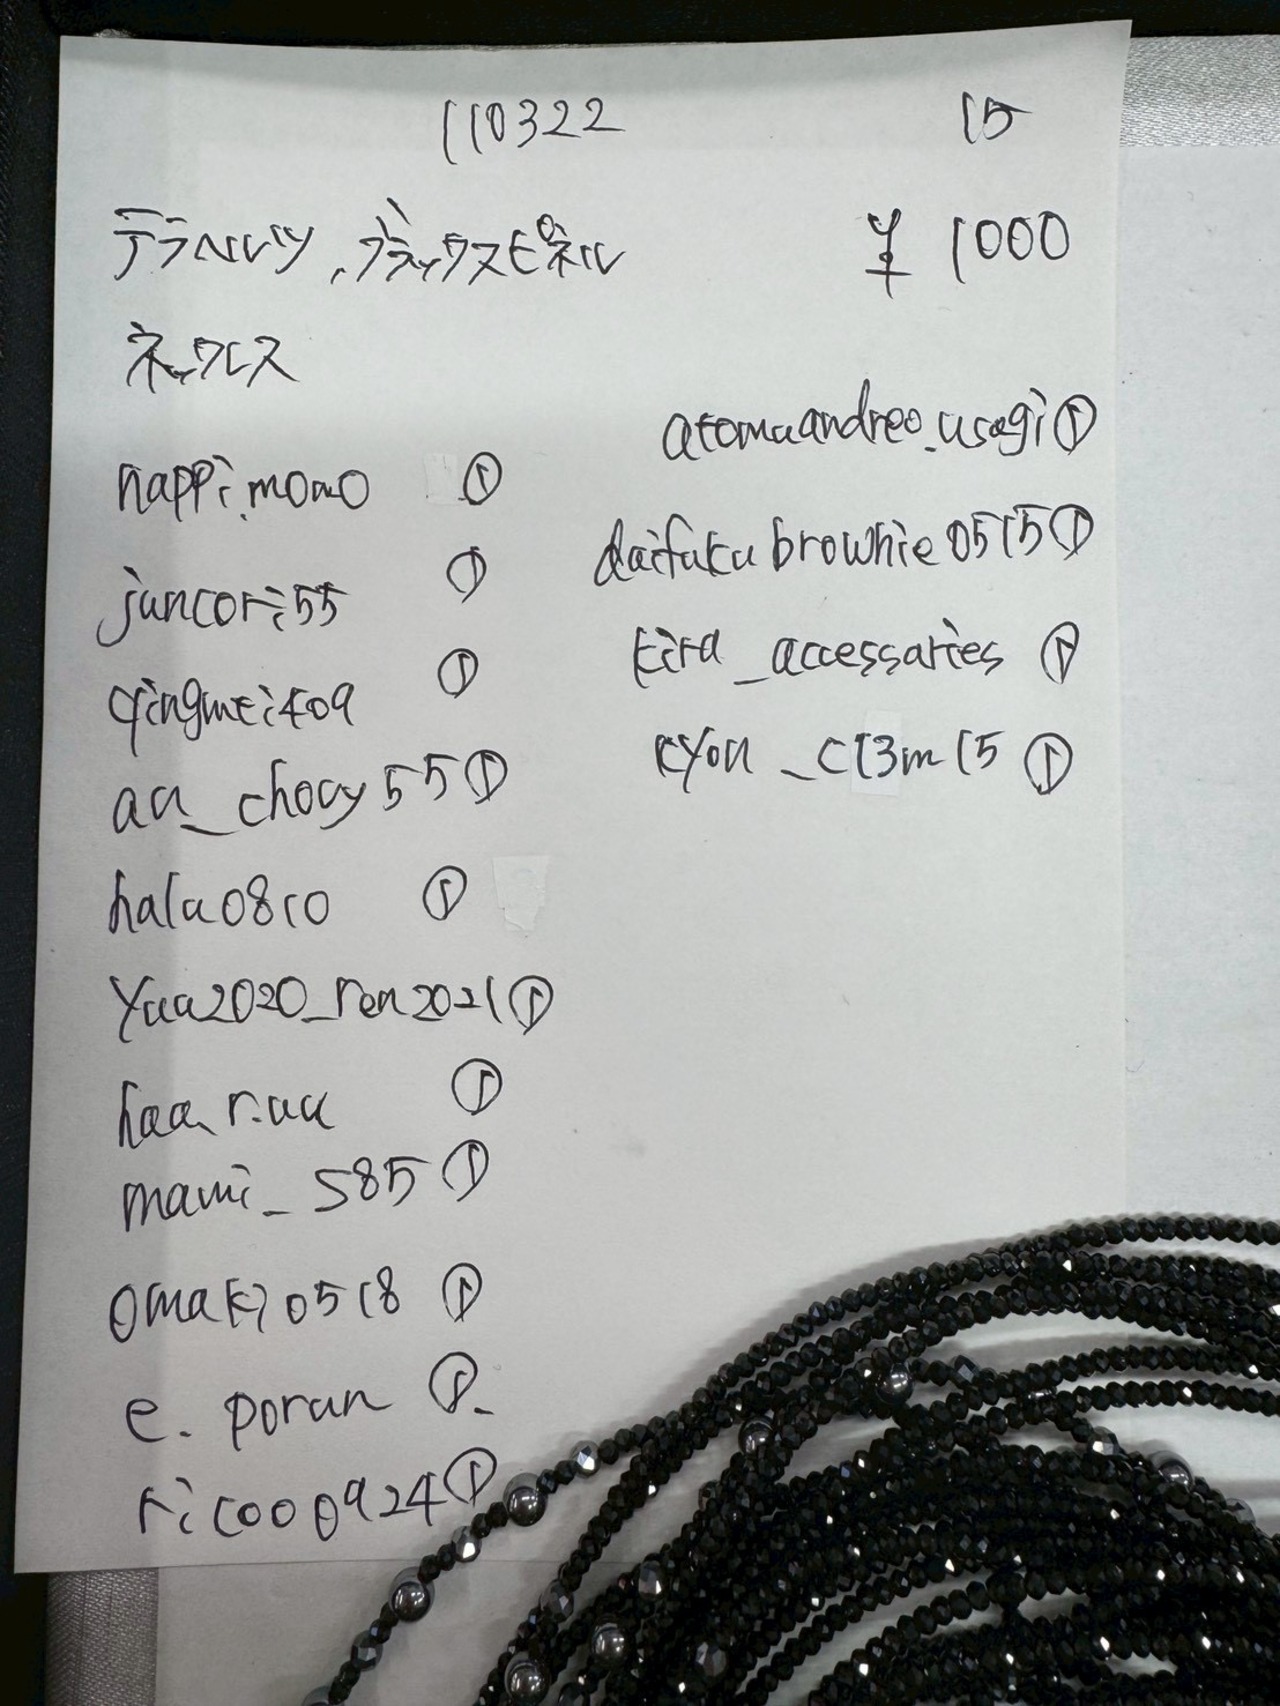 110322 15
テラヘルツ、ブラックスピネル ¥1000
ネックレス
nappi.momo ①
juncori55 ①
qingmei409 ①
au_chocy55 ①
halu0810 ①
yuu2020_ren2021 ①
haa.r.uu ①
mami_585 ①
omaki0518 ①
e.poran ①
ricooo0924 ①
atomuandreo_usagi ①
daifukubrownie0515 ①
kira_accessaries ①
kyou_c13m15 ①